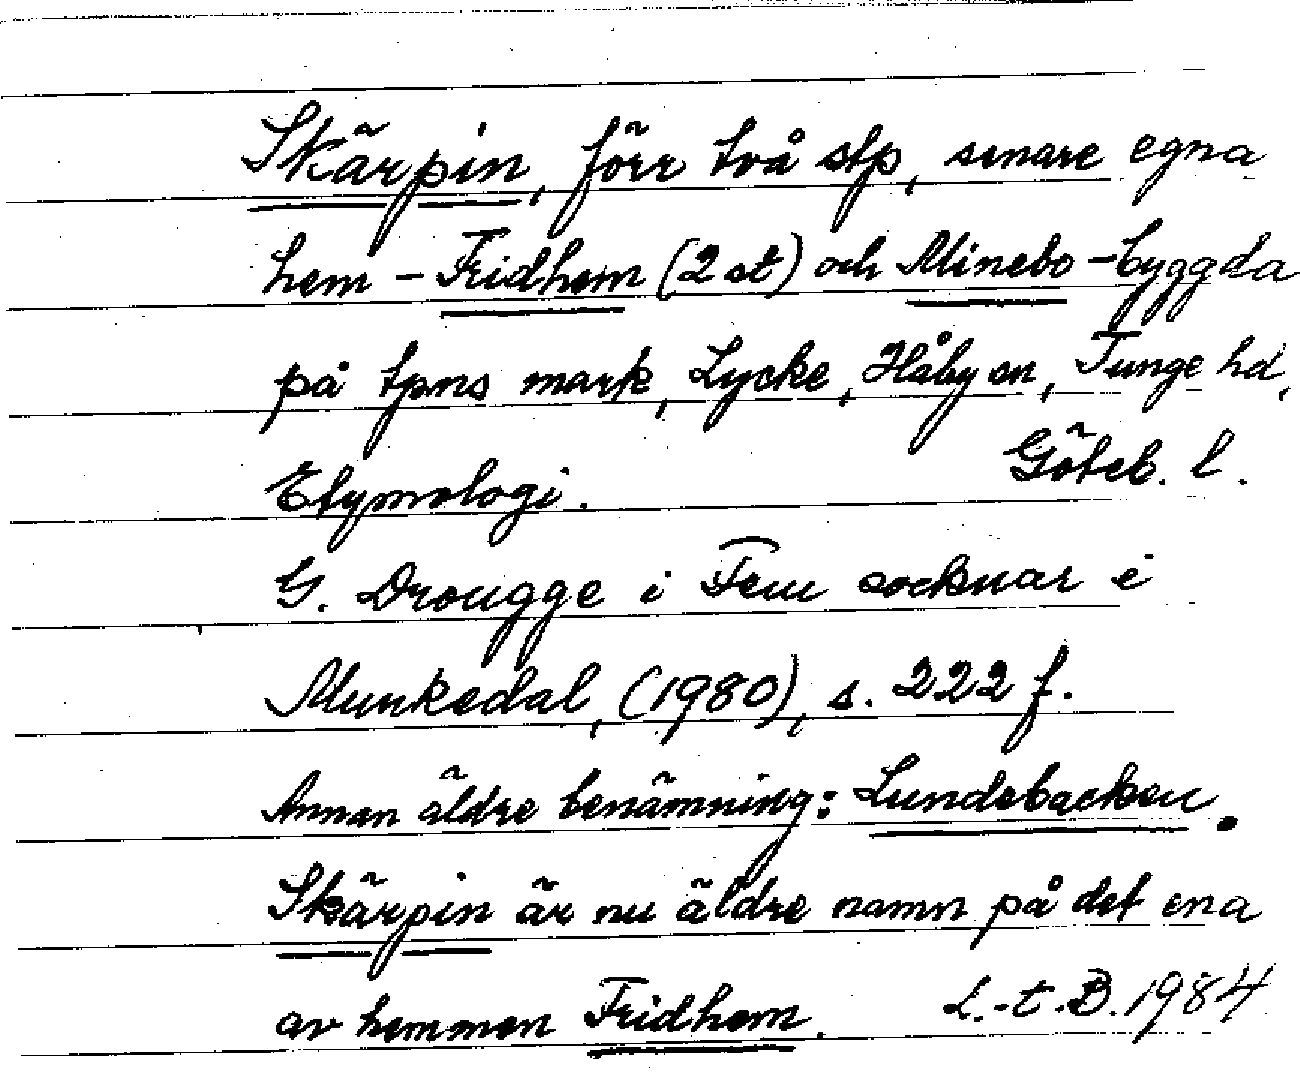 Skärpin, förr två stp, senare egna
hem – Fridhem (2 st) och Minebo – byggda
på tpns mark, Lycke, Håby sn, Tunge hd,
Göteb. l.
Etymologi.
G. Drougge i Fem socknar i
Munkedal, (1980), s. 222 f.
Annan äldre benämning: Lundebacken.
Skärpin är nu äldre namn på det ena
av hemmen Fridhem. L.-t.B. 1984